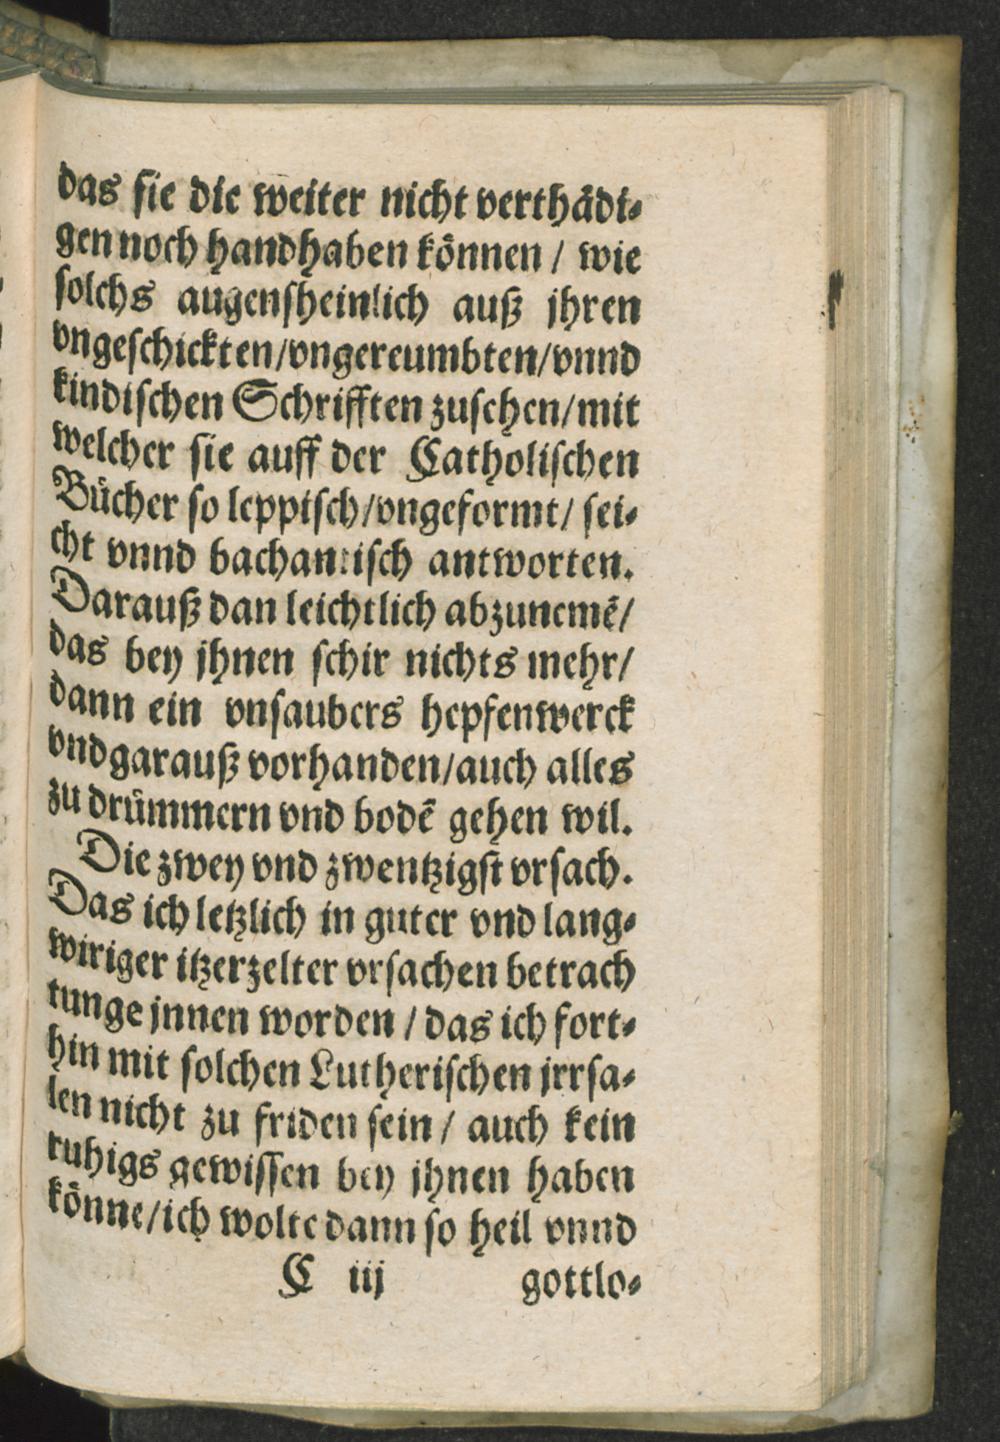 das sie die weiter nicht verthådi⸗
gen noch handhaben kőnnen / wie
solchs augensheinlich auß jhren
vngeschickten/vngereumbten/vnnd
kindischen Schrifften zusehen/mit
welcher sie auff der Catholischen
Bücher so leppisch/vngeformt/ sei⸗
cht vnnd bachantisch antworten.
Darauß dan leichtlich abzunemē/
das bey jhnen schir nichts mehr/
dann ein vnsaubers hepfenwerck
vnd garauß vorhanden/auch alles
zu drümmern vnd bodē gehen wil.
Die zwey vnd zwentzigst vrsach.
Das ich letzlich in guter vnd lang⸗
wiriger itzerzelter vrsachen betrach
tunge jnnen worden / das ich fort⸗
hin mit solchen Lutherischen jrrsa⸗
len nicht zu friden sein / auch kein
ruhigs gewissen bey jhnen haben
könne/ich wolte dann so heil vnnd
C iij gottlo⸗